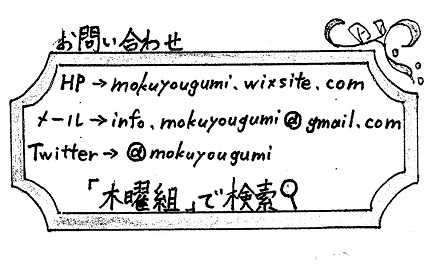 お問い合わせ
HP→mokuyougumi.wixsite.com
メール→info.mokuyougumi@gmail.com
Twitter→@mokuyougumi
「木曜組」で検索